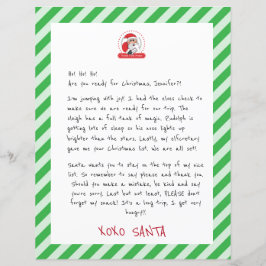 Ho! Ho! Ho!
Are you ready for Christmas, Jennifer?!
I'm jumping with joy! I had the elves check to
make sure we are ready for our trip. The
sleigh has a full tank of magic. Rudolph is
getting lots of sleep so his nose lights up
brighter than the stars. Lastly, my elfcretary
gave me your Christmas list. We are all set!
Santa wants you to stay on the top of my nice
list. So remember to say please and thank you.
Should you make a mistake, be kind and say
you're sorry. Last but not least, PLEASE don't
forget my snack! It's a long trip, I get very
hungry!!
XOXO SANTA